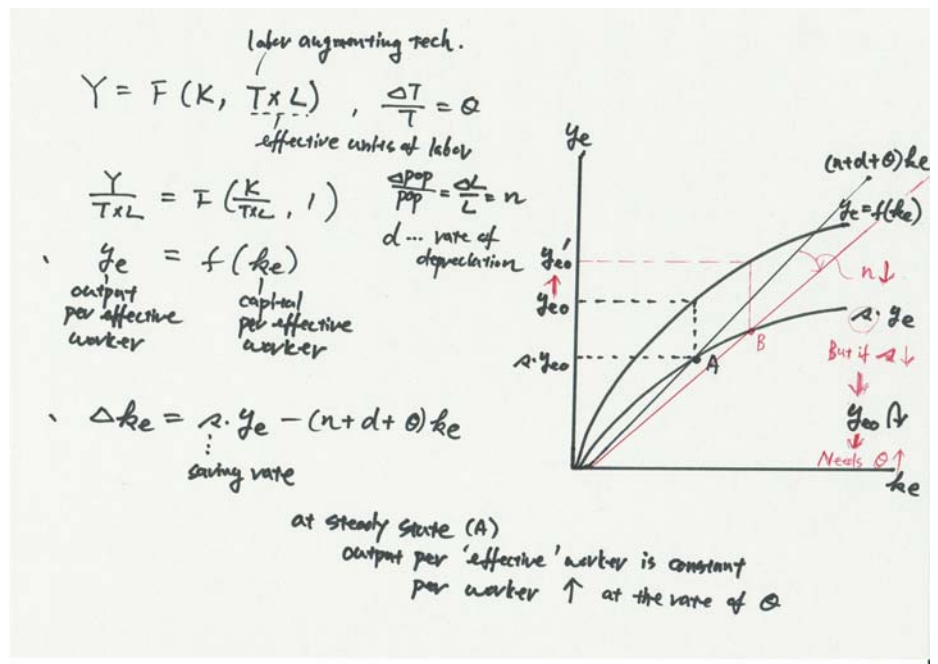 labor augmenting tech.
Y = F (K, T x L) , ΔT/T = θ
effective units of labor
Y/TxL = F (K/TxL , 1)
Δpop/pop = ΔL/L = n
d ... rate of
depreciation
ye = f (ke)
output
per effective
worker
capital
per effective
worker
Δke = s. ye - (n + d + θ) ke
saving rate
at steady state (A)
output per 'effective' worker is constant
per worker ↑ at the rate of θ
ye
(n+d+θ)ke
ye = f(ke)
n↓
ye0'
↑
ye0
s. ye
s. ye0
A
B
But if s ↓
↓
ye0
↓
Needs θ ↑
ke